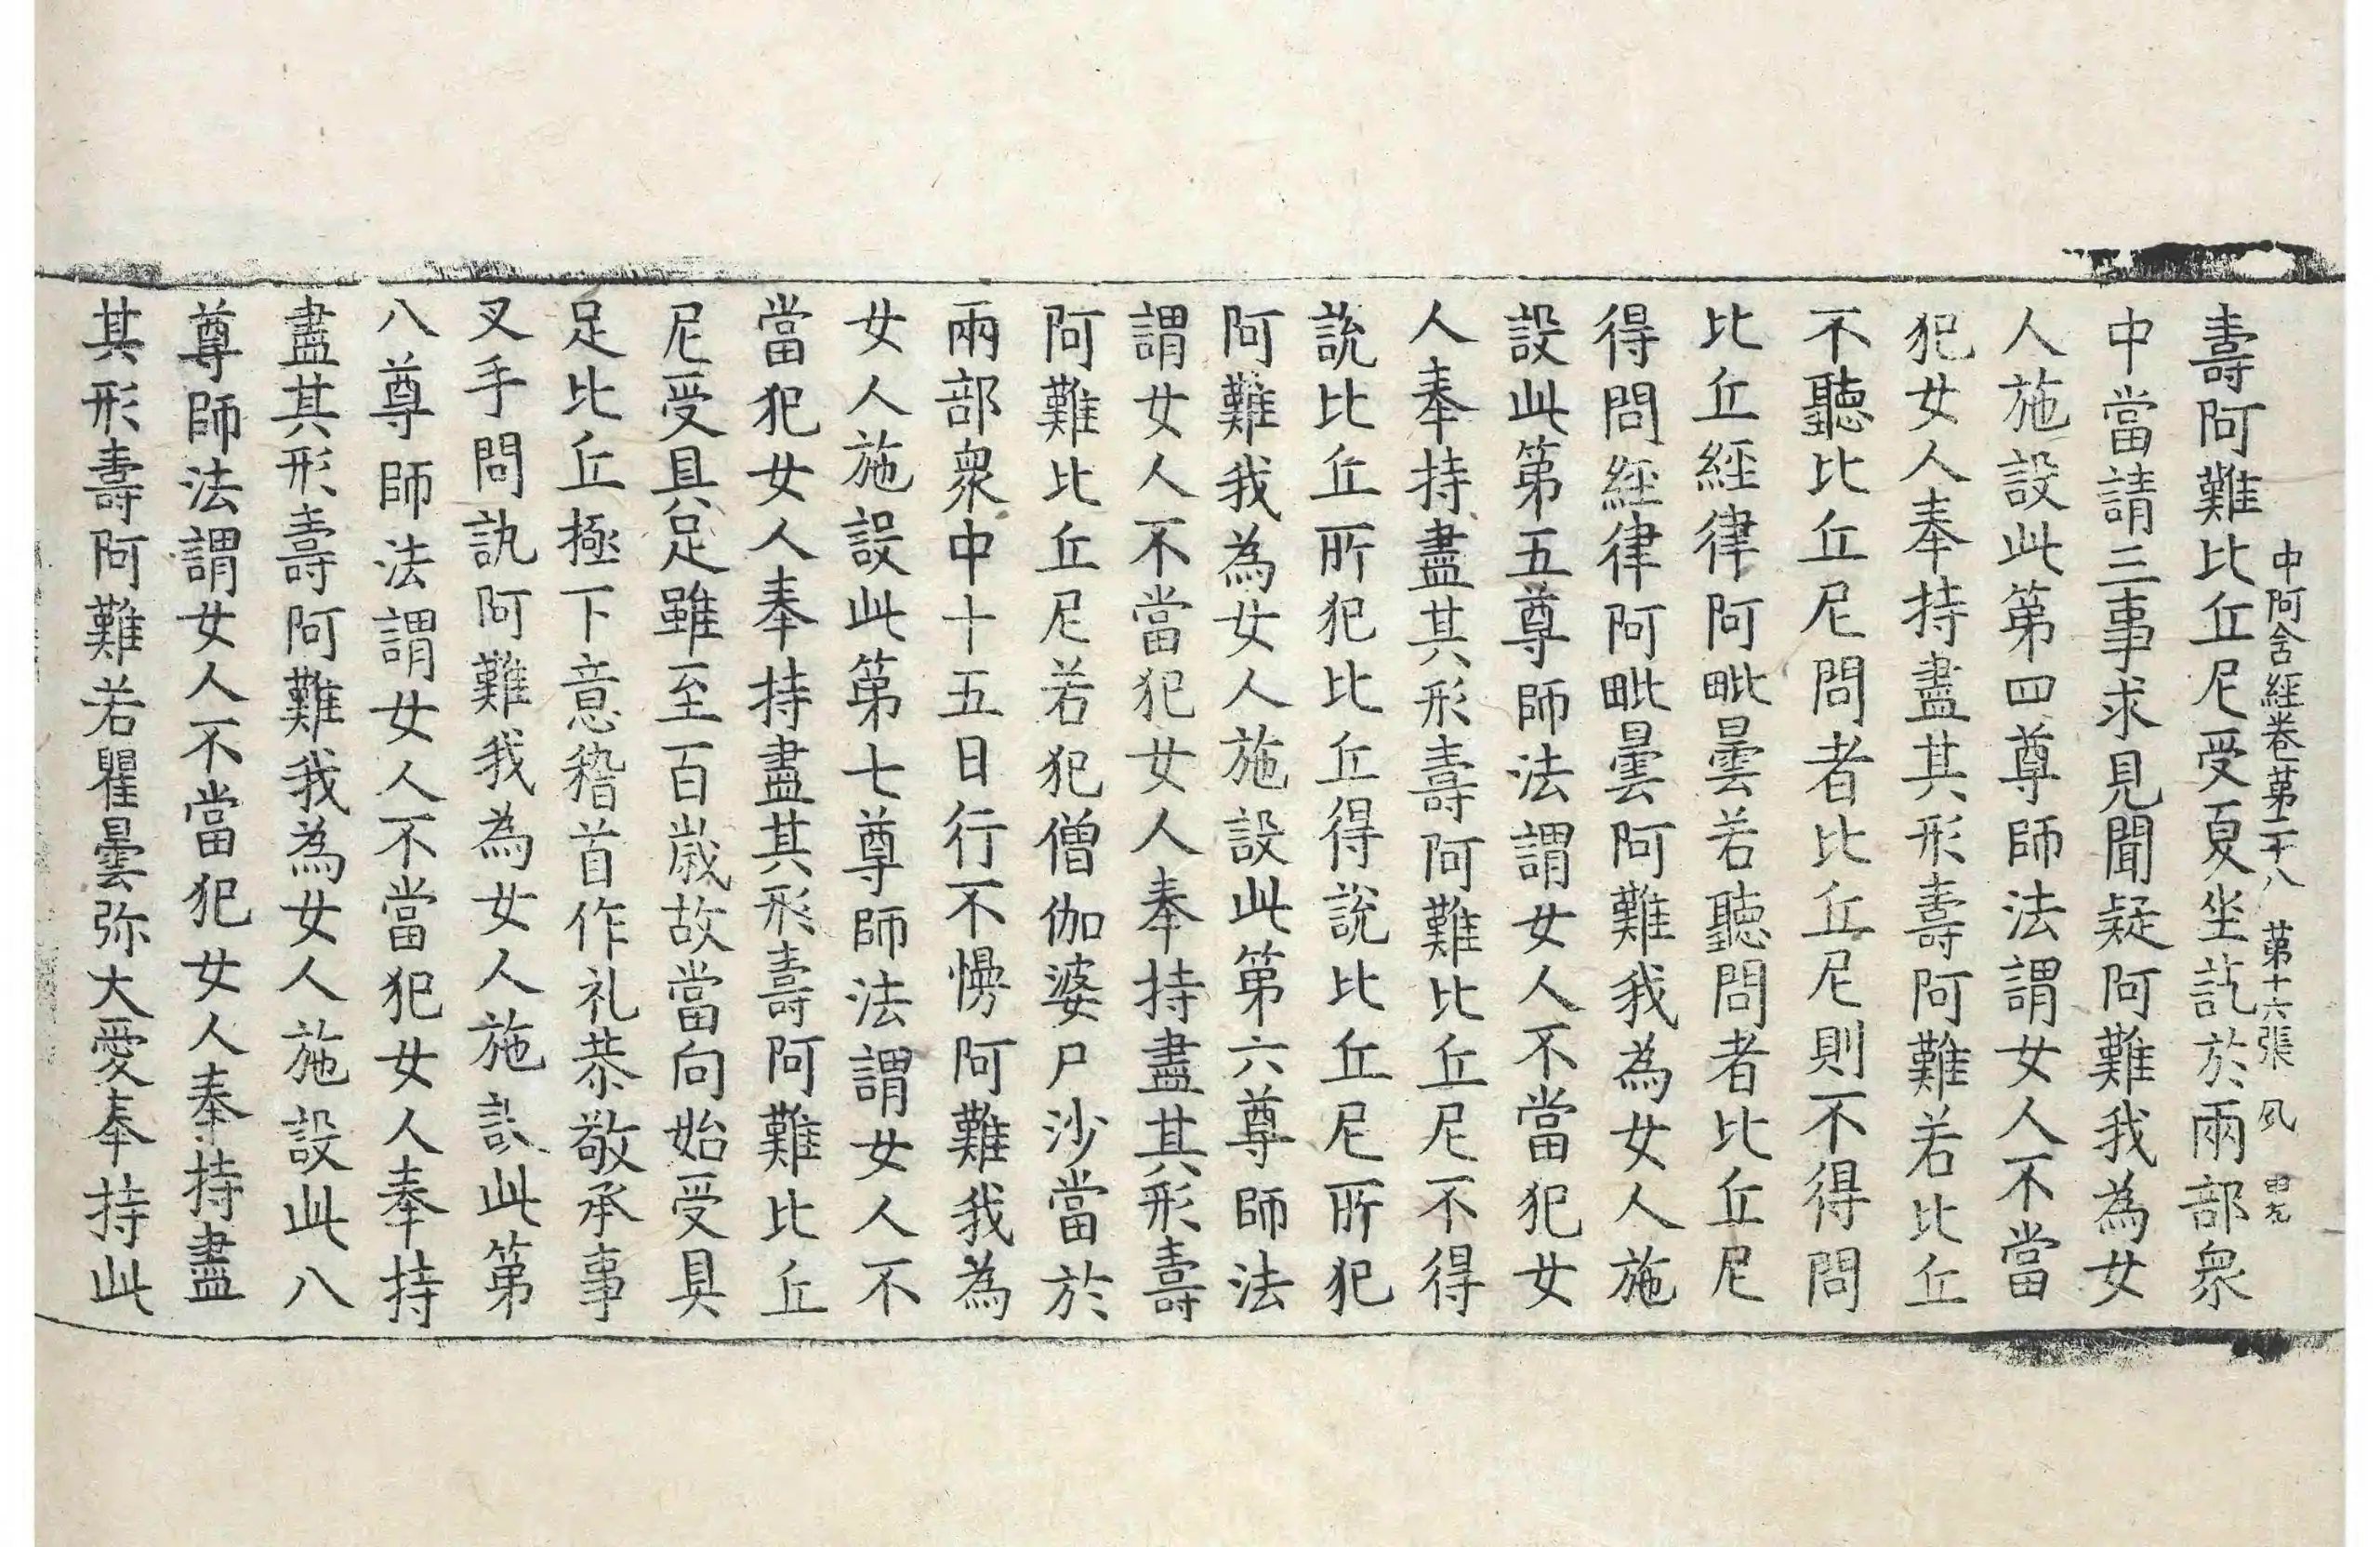 中阿含經卷第二十八 第十六張 風
壽阿難比丘尼受夏坐訖於兩部衆
中當請三事求見聞疑阿難我為女
人施設此第四尊師法謂女人不當
犯女人奉持盡其形壽阿難若比丘
不聽比丘尼問者比丘尼則不得問
比丘經律阿毗曇若聽問者比丘尼
得問經律阿毗曇阿難我為女人施
設此第五尊師法謂女人不當犯女
人奉持盡其形壽阿難比丘尼不得
說比丘所犯比丘得說比丘尼所犯
阿難我為女人施設此第六尊師法
謂女人不當犯女人奉持盡其形壽
阿難比丘尼若犯僧伽婆尸沙當於
兩部衆中十五日行不慢阿難我為
女人施設此第七尊師法謂女人不
當犯女人奉持盡其形壽阿難比丘
尼受具足雖至百歲故當向始受具
足比丘極下意稽首作礼恭敬承事
叉手問訊阿難我為女人施設此第
八尊師法謂女人不當犯女人奉持
盡其形壽阿難我為女人施設此八
尊師法謂女人不當犯女人奉持盡
其形壽阿難若瞿曇弥大愛奉持此